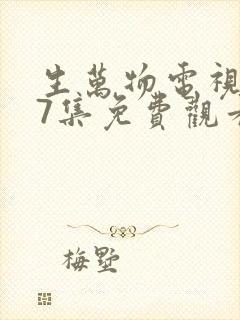 生萬物電視
7集免費觀看
梅墅